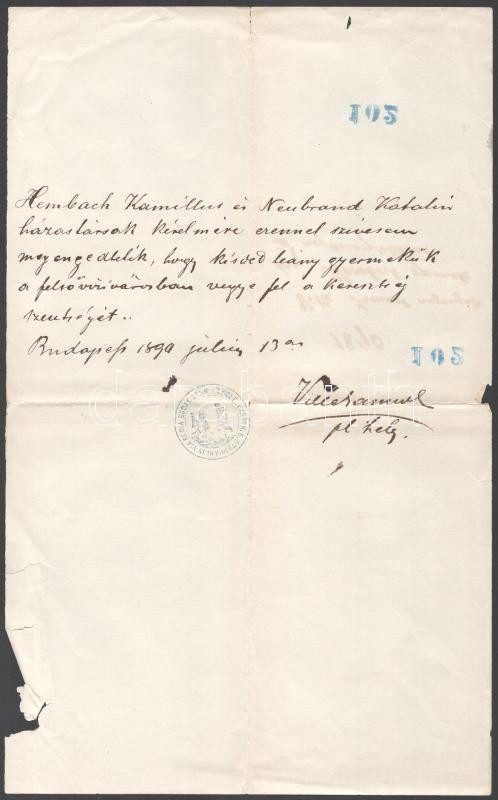 102
Hembach Kamillus és Neubrand Katalin
házastársak kérelmére ezennel szívesen
megengedtetik, hogy kisded leány gyermekük
a felsővízivárosban vegye fel a keresztség
szentségét..
Budapest 1890 július 13án
102
pl. hely.